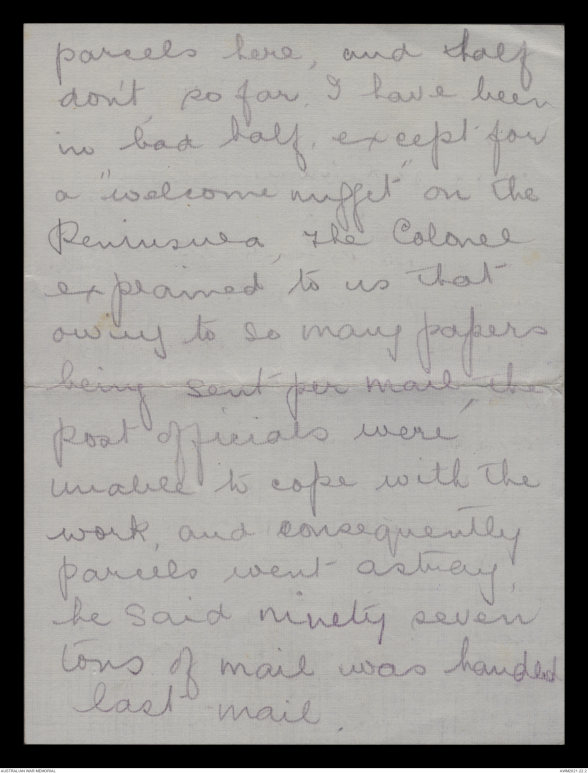 parcels here, and half
don't so far. I have been
in bad half, except for
a "welcome nugget" on the
Peninsula, the Colonel
explained to us that
owing to so many papers
being sent per mail, the
post officials were
unable to cope with the
work, and consequently
parcels went astray,
he said ninety seven
tons of mail was handed
last mail.
AUSTRALIAN WAR MEMORIAL